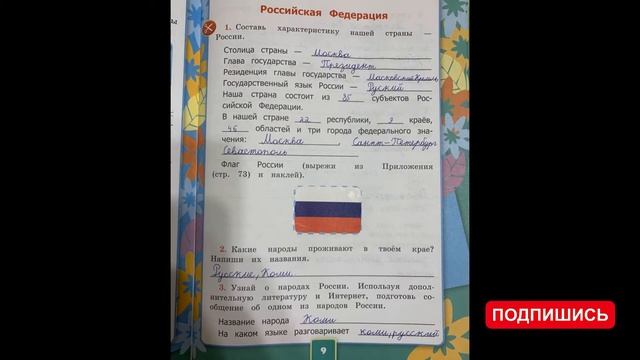 Российская Федерация
1. Составь характеристику нашей страны —
России.
Столица страны — Москва
Глава государства — Президент
Резиденция главы государства — Московский Кремль
Государственный язык России — Руский
Наша страна состоит из 85 субъектов Рос-
сийской Федерации.
В нашей стране 22 республики, 9 краёв,
46 областей и три города федерального зна-
чения: Москва, Санкт-Петербург
Севастополь
Флаг России (вырежи из Приложения
(стр. 73) и наклей).
2. Какие народы проживают в твоём крае?
Напиши их названия.
Русские, Коми
3. Узнай о народах России. Используя допол-
нительную литературу и Интернет, подготовь со-
общение об одном из народов России.
Название народа Коми
На каком языке разговаривает коми, русский
9
ПОДПИШИСЬ